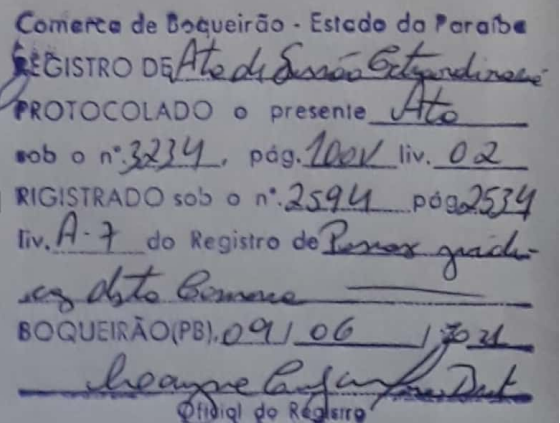 Comarca de Boqueirão - Estado da Paraíba
REGISTRO DE Ata de Sessão Extraordinária
PROTOCOLADO o presente Ato
sob o nº. 3234, pág. 100V liv. 02
RIGISTRADO sob o nº. 2594 pág. 253V
liv. A-7 do Registro de Pessoas Jurídi-
cas desta Comarca
BOQUEIRÃO(PB), 09 / 06 / 2021
Oficial do Registro